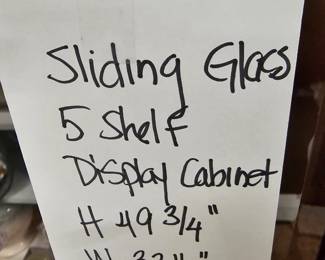 Sliding Glass
5 Shelf
Display Cabinet
H 49 3/4"
W